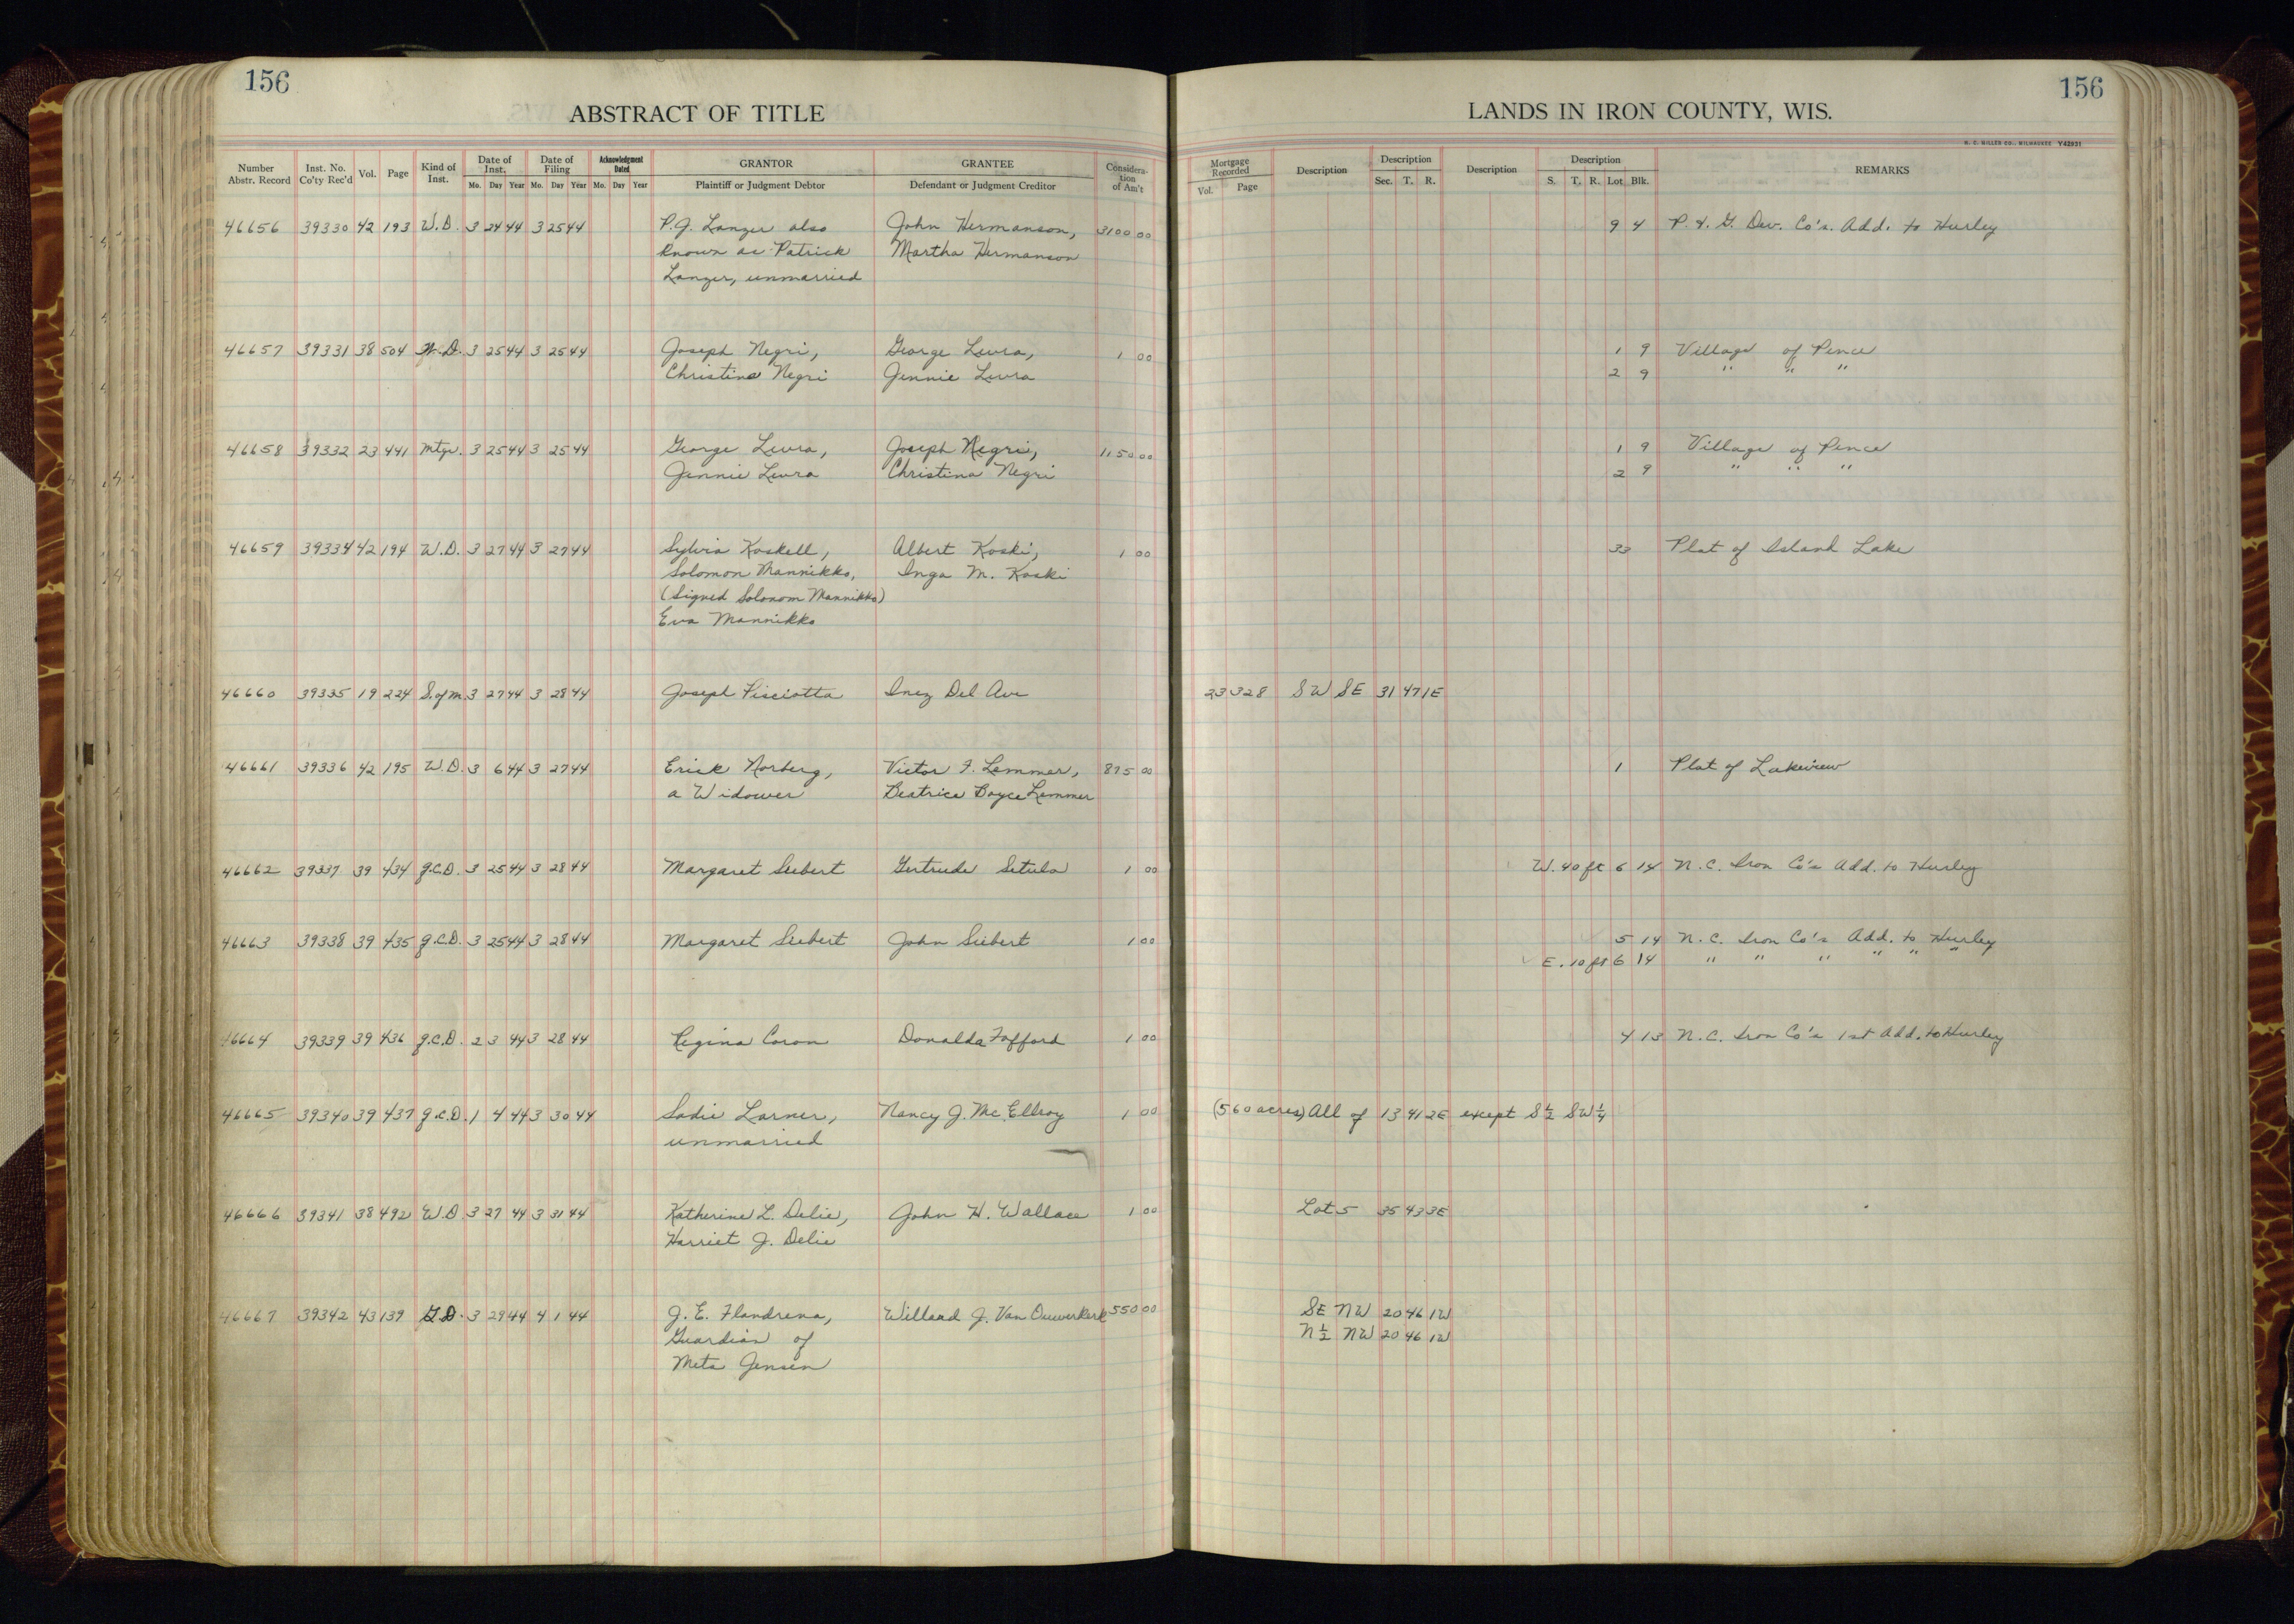 156
156
ABSTRACT OF TITLE
LANDS IN IRON COUNTY, WIS.
H. C. MILLER CO., MILWAUKEE Y42931
Number Abstr. Record Inst. No. Co'ty Rec'd Vol. Page Kind of Inst. Date of Inst. Mo. Day Year Date of Filing Mo. Day Year Acknowledgment Dated Mo. Day Year GRANTOR Plaintiff or Judgment Debtor GRANTEE Defendant or Judgment Creditor Consideration of Am't Mortgage Recorded Vol. Page Description Description Sec. T. R. Description Description S. T. R. Lot Blk. REMARKS
46656 39330 42 193 W.D. 3 24 44 3 25 44 P.J. Lanzer also John Hermanson, 3100 00 9 4 P. & G. Dev. Co's. Add. to Hurley
known as Patrick Martha Hermanson
Lanzer, unmarried
46657 39331 38 504 W.D. 3 25 44 3 25 44 Joseph Negri, George Levra, 1 00 1 9 Village of Pence
Christina Negri Jennie Levra 2 9 " " "
46658 39332 23 441 Mtge. 3 25 44 3 25 44 George Levra, Joseph Negri, 1150 00 1 9 Village of Pence
Jennie Levra Christina Negri 2 9 " " "
46659 39334 42 194 W.D. 3 27 44 3 27 44 Sylvia Koskell, Albert Koski, 1 00 33 Plat of Island Lake
Solomon Mannikko, Inga M. Koski
(Signed Solonom Mannikko)
Eva Mannikko
46660 39335 19 224 S. of M. 3 27 44 3 28 44 Joseph Pisciotta Inez Del Ave 23 328 SW SE 31 47 1E
46661 39336 42 195 W.D. 3 6 44 3 27 44 Erick Norberg, Victor F. Lemmer, 875 00 1 Plat of Lakeview
a Widower Beatrice Boyce Lemmer
46662 39337 39 434 q.C.D. 3 25 44 3 28 44 Margaret Siebert Gertrude Setula 1 00 W. 40 ft 6 14 N. C. Iron Co's Add. to Hurley
46663 39338 39 435 q.C.D. 3 25 44 3 28 44 Margaret Siebert John Siebert 1 00 5 14 N. C. Iron Co's Add. to Hurley
E. 10 ft 6 14 " " " " " "
46664 39339 39 436 q.C.D. 2 3 44 3 28 44 Regina Coron Donalda Fofford 1 00 4 13 N. C. Iron Co's 1st Add. to Hurley
46665 39340 39 437 q.C.D. 1 4 44 3 30 44 Sadie Larner, Nancy J. McEllroy 1 00 (560 acres) All of 13 41 2E except S½ SW¼
unmarried
46666 39341 38 492 W.D 3 27 44 3 31 44 Katherine L. Delie, John H. Wallace 1 00 Lot 5 35 43 3E
Harriet J. Delie
46667 39342 43 139 G.D. 3 29 44 4 1 44 J. E. Flandrena, Willard J. Van Ouwerkerk 550 00 SE NW 20 46 1W
Guardian of N½ NW 20 46 1W
Meta Jensen